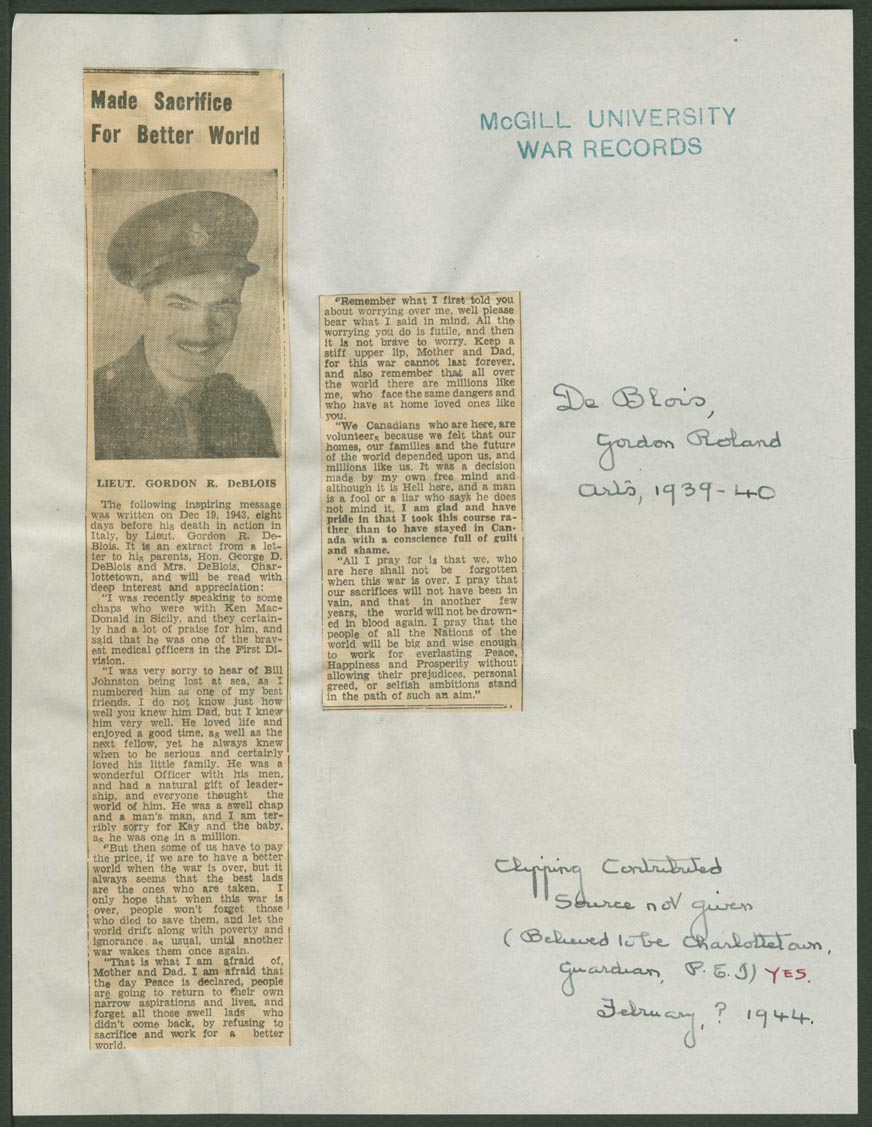 Made Sacrifice
For Better World
LIEUT. GORDON R. DeBLOIS
The following inspiring message
was written on Dec 19, 1943, eight
days before his death in action in
Italy, by Lieut. Gordon R. De-
Blois. It is an extract from a let-
ter to his parents, Hon. George D.
DeBlois and Mrs. DeBlois, Char-
lottetown, and will be read with
deep interest and appreciation:
"I was recently speaking to some
chaps who were with Ken Mac-
Donald in Sicily, and they certain-
ly had a lot of praise for him, and
said that he was one of the brav-
est medical officers in the First Di-
vision.
"I was very sorry to hear of Bill
Johnston being lost at sea, as I
numbered him as one of my best
friends. I do not know just how
well you knew him Dad, but I knew
him very well. He loved life and
enjoyed a good time, as well as the
next fellow, yet he always knew
when to be serious and certainly
loved his little family. He was a
wonderful Officer with his men,
and had a natural gift of leader-
ship, and everyone thought the
world of him. He was a swell chap
and a man's man, and I am ter-
ribly sorry for Kay and the baby,
as he was one in a million.
"But then some of us have to pay
the price, if we are to have a better
world when the war is over, but it
always seems that the best lads
are the ones who are taken. I
only hope that when this war is
over, people won't forget those
who died to save them, and let the
world drift along with poverty and
ignorance as usual, until another
war wakes them once again.
"That is what I am afraid of,
Mother and Dad. I am afraid that
the day Peace is declared, people
are going to return to their own
narrow aspirations and lives, and
forget all those swell lads who
didn't come back, by refusing to
sacrifice and work for a better
world.
"Remember what I first told you
about worrying over me, well please
bear what I said in mind. All the
worrying you do is futile, and then
it is not brave to worry. Keep a
stiff upper lip, Mother and Dad,
for this war cannot last forever,
and also remember that all over
the world there are millions like
me, who face the same dangers and
who have at home loved ones like
you.
"We Canadians who are here, are
volunteers because we felt that our
homes, our families and the future
of the world depended upon us, and
millions like us. It was a decision
made by my own free mind and
although it is Hell here, and a man
is a fool or a liar who says he does
not mind it, I am glad and have
pride in that I took this course ra-
ther than to have stayed in Can-
ada with a conscience full of guilt
and shame.
"All I pray for is that we, who
are here shall not be forgotten
when this war is over. I pray that
our sacrifices will not have been in
vain, and that in another few
years, the world will not be drown-
ed in blood again. I pray that the
people of all the Nations of the
world will be big and wise enough
to work for everlasting Peace,
Happiness and Prosperity without
allowing their prejudices, personal
greed, or selfish ambitions stand
in the path of such an aim."
McGILL UNIVERSITY
WAR RECORDS
De Blois,
Gordon Roland
Arts, 1939-40
Clipping Contributed
Source not given
(Believed to be Charlottetown,
Guardian, P.E.I) YES.
February, ? 1944.